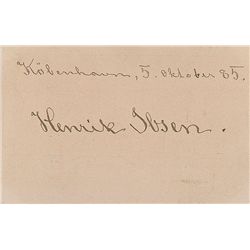 København, 5. oktober 85.
Henrik Ibsen.